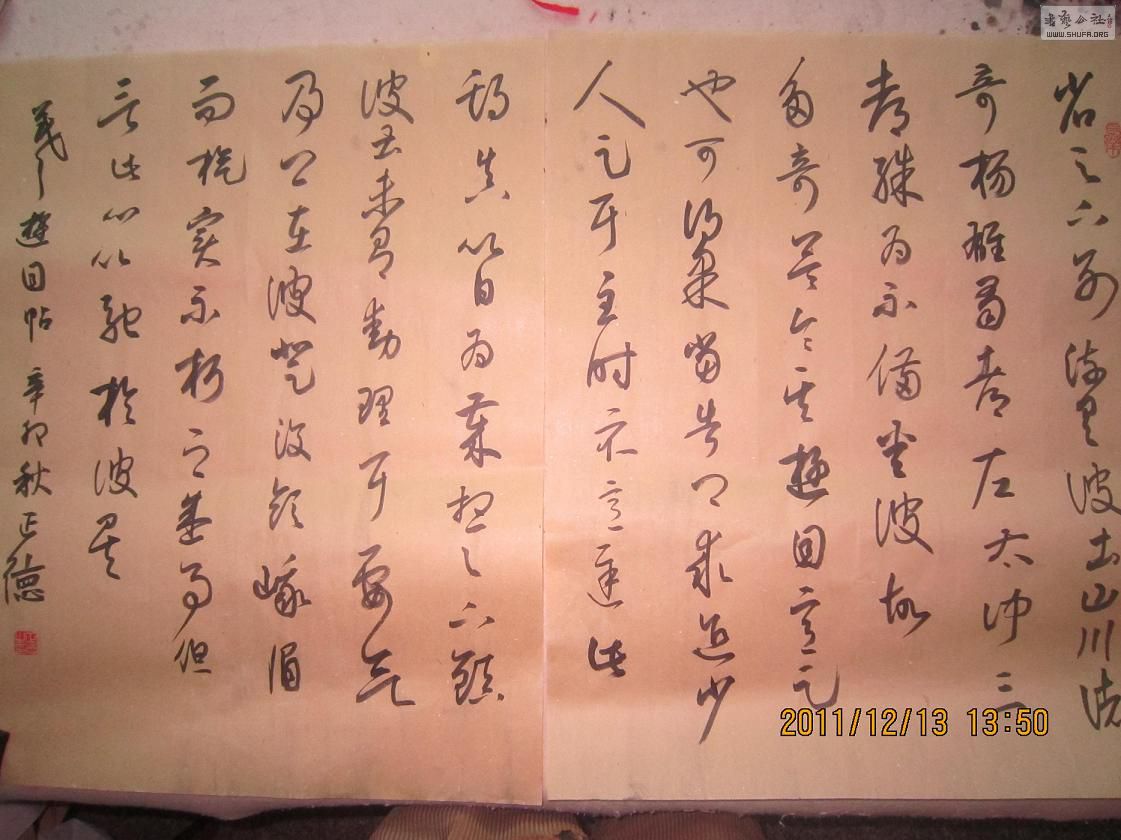 省足下別疏具彼土山川諸
奇楊雄蜀都左太沖三
都殊為不備悉彼故
多奇益令其遊目意足
也可得果當告卿求迎少
人足耳至時示意遲此
期真以日為歲想足下鎮
彼土未有動理耳要欲
及卿在彼登汶領峨眉
而旋實不朽之盛事但
言此心以馳於彼矣
羲之遊目帖 辛卯秋 正德
書藝公社
WWW.SHUFA.ORG
2011/12/13 13:50